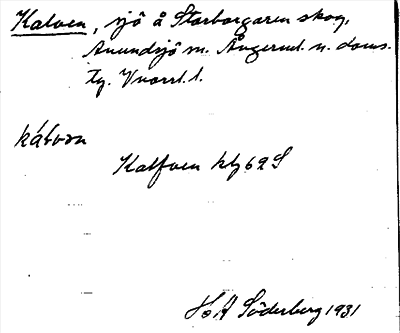 Kalven, sjö å Storborgaren skog,
Anundsjö sn. Ångerml. n. doms.
tg. Vnorrl. l.
kálvən
Kalfven ktg 62 S
H A Söderberg 1931